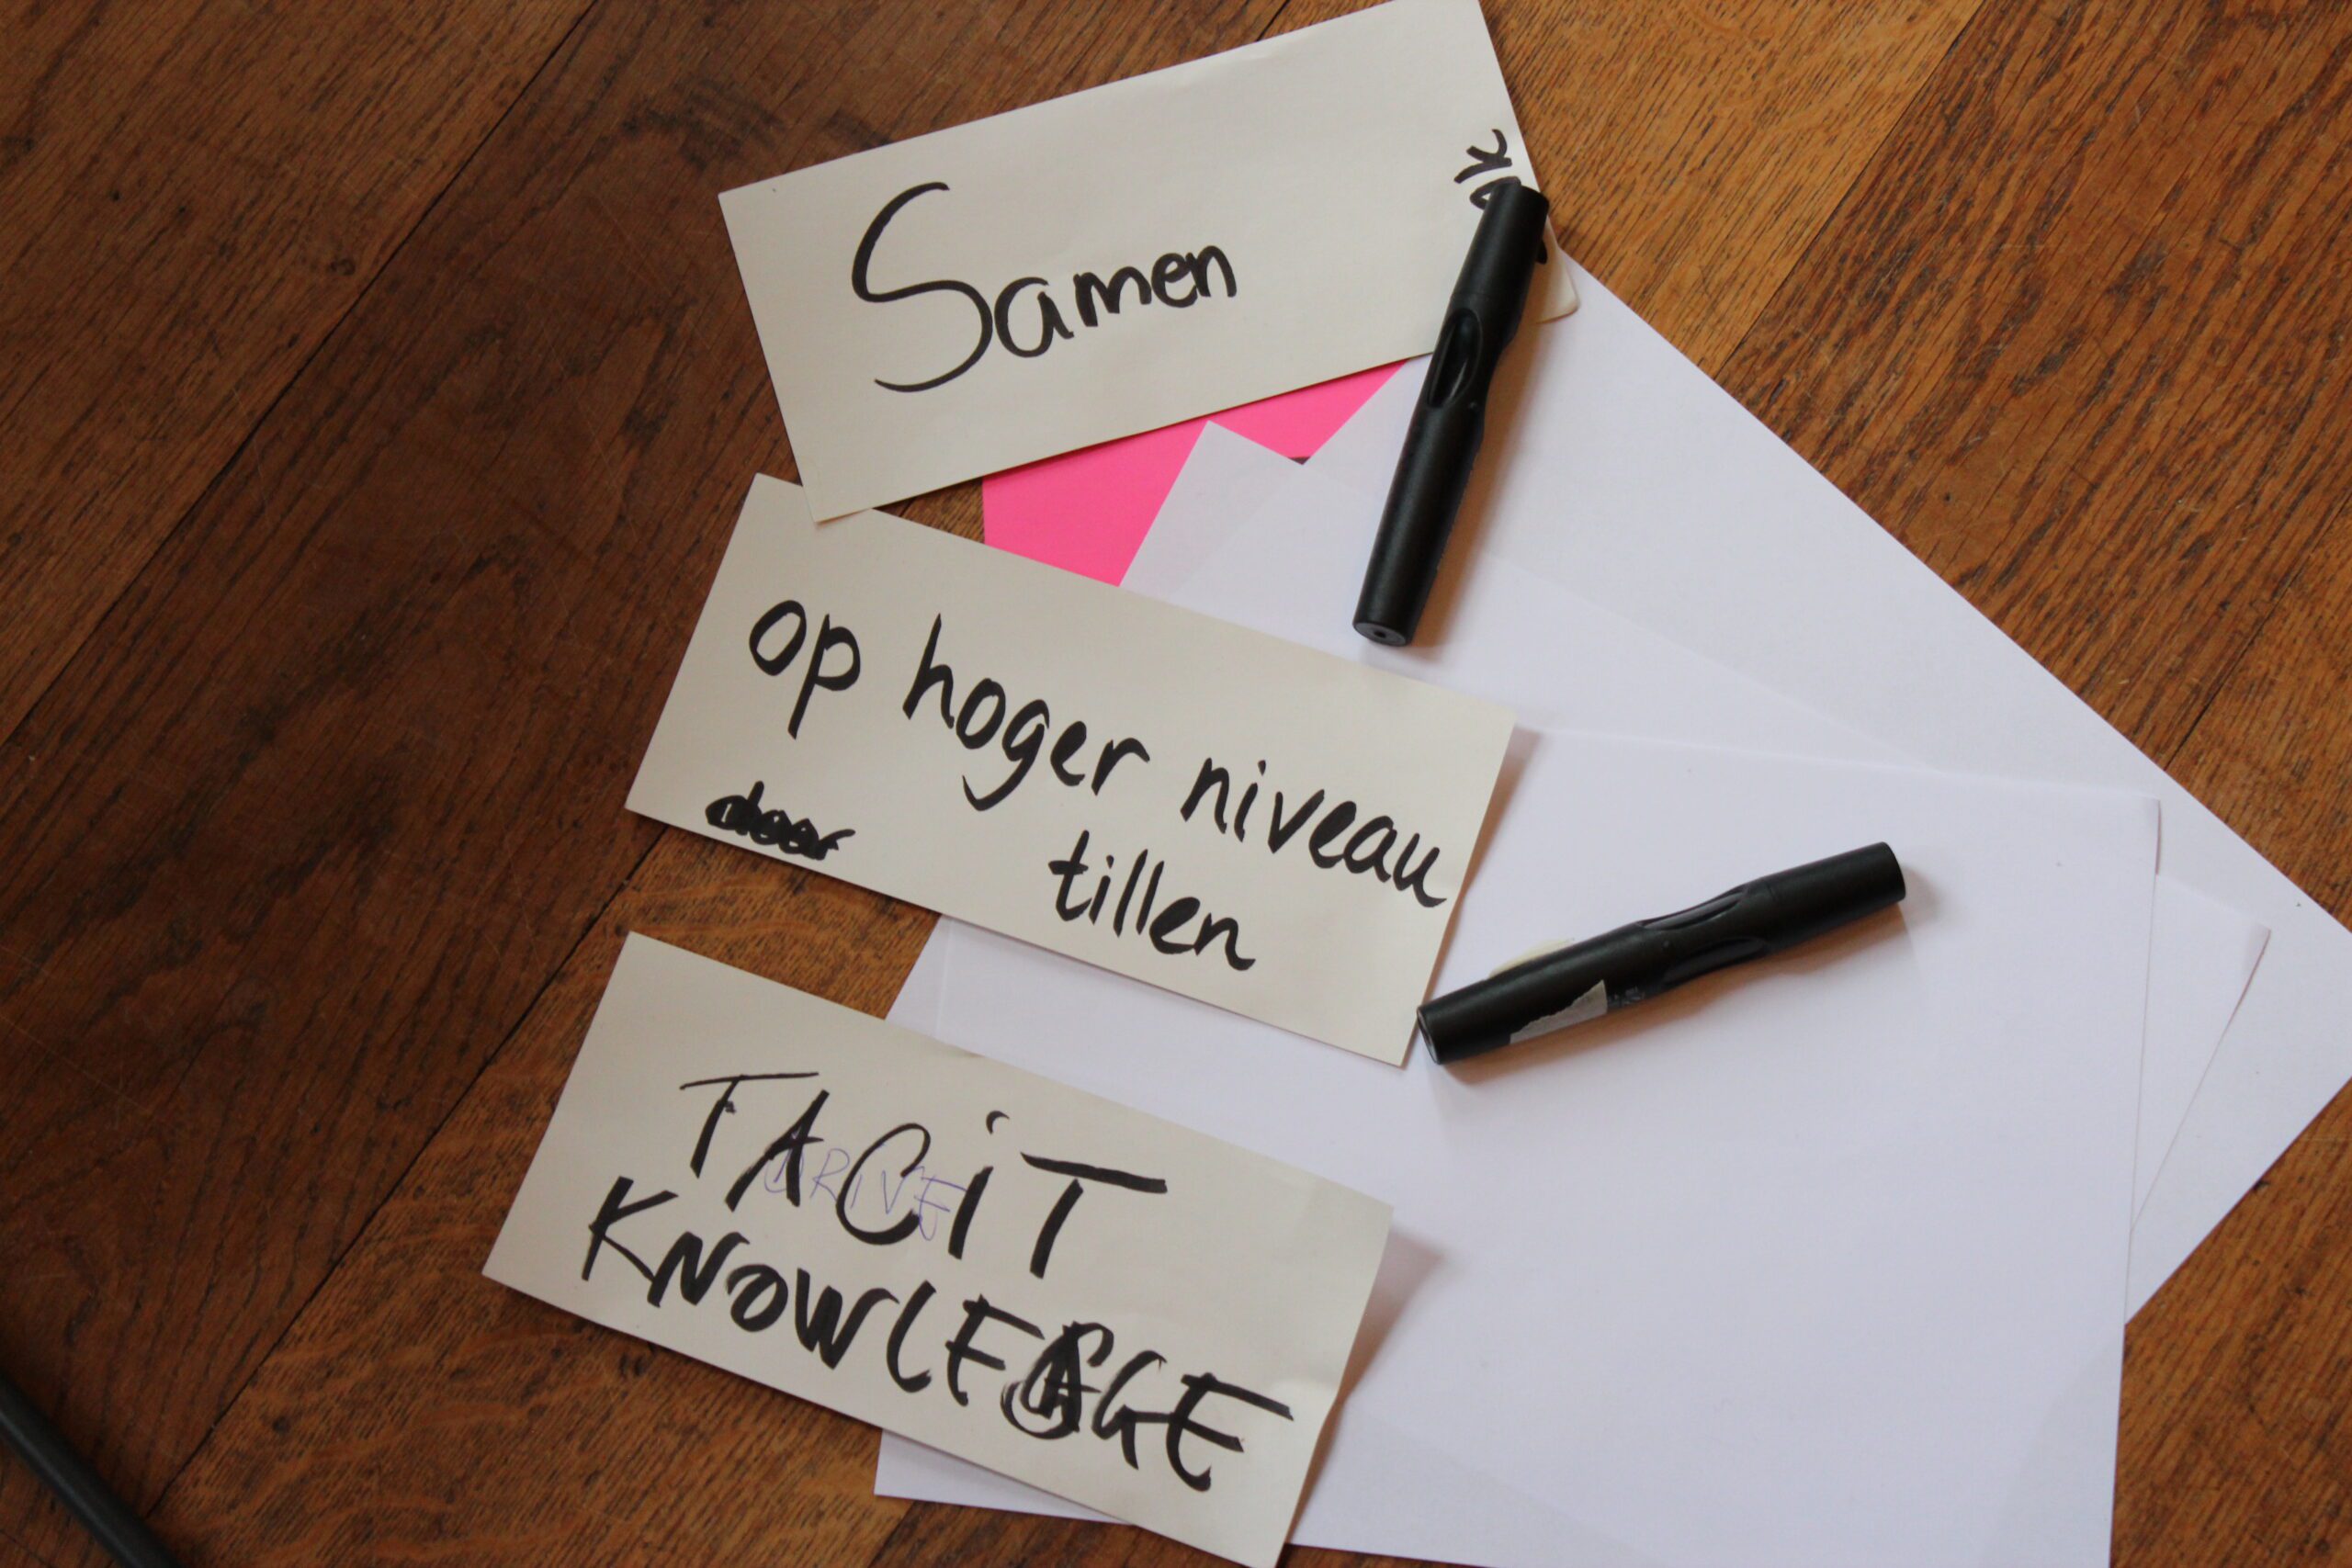 Samen
op hoger niveau
door tillen
TACiT
DRIVE
KNOWLEDGE